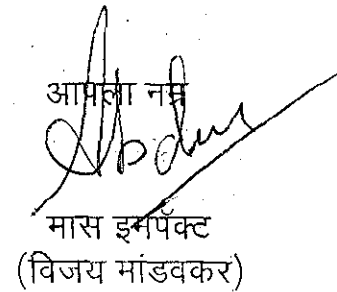 आपला नम्र
मास इम्पॅक्ट
(विजय मांडवकर)